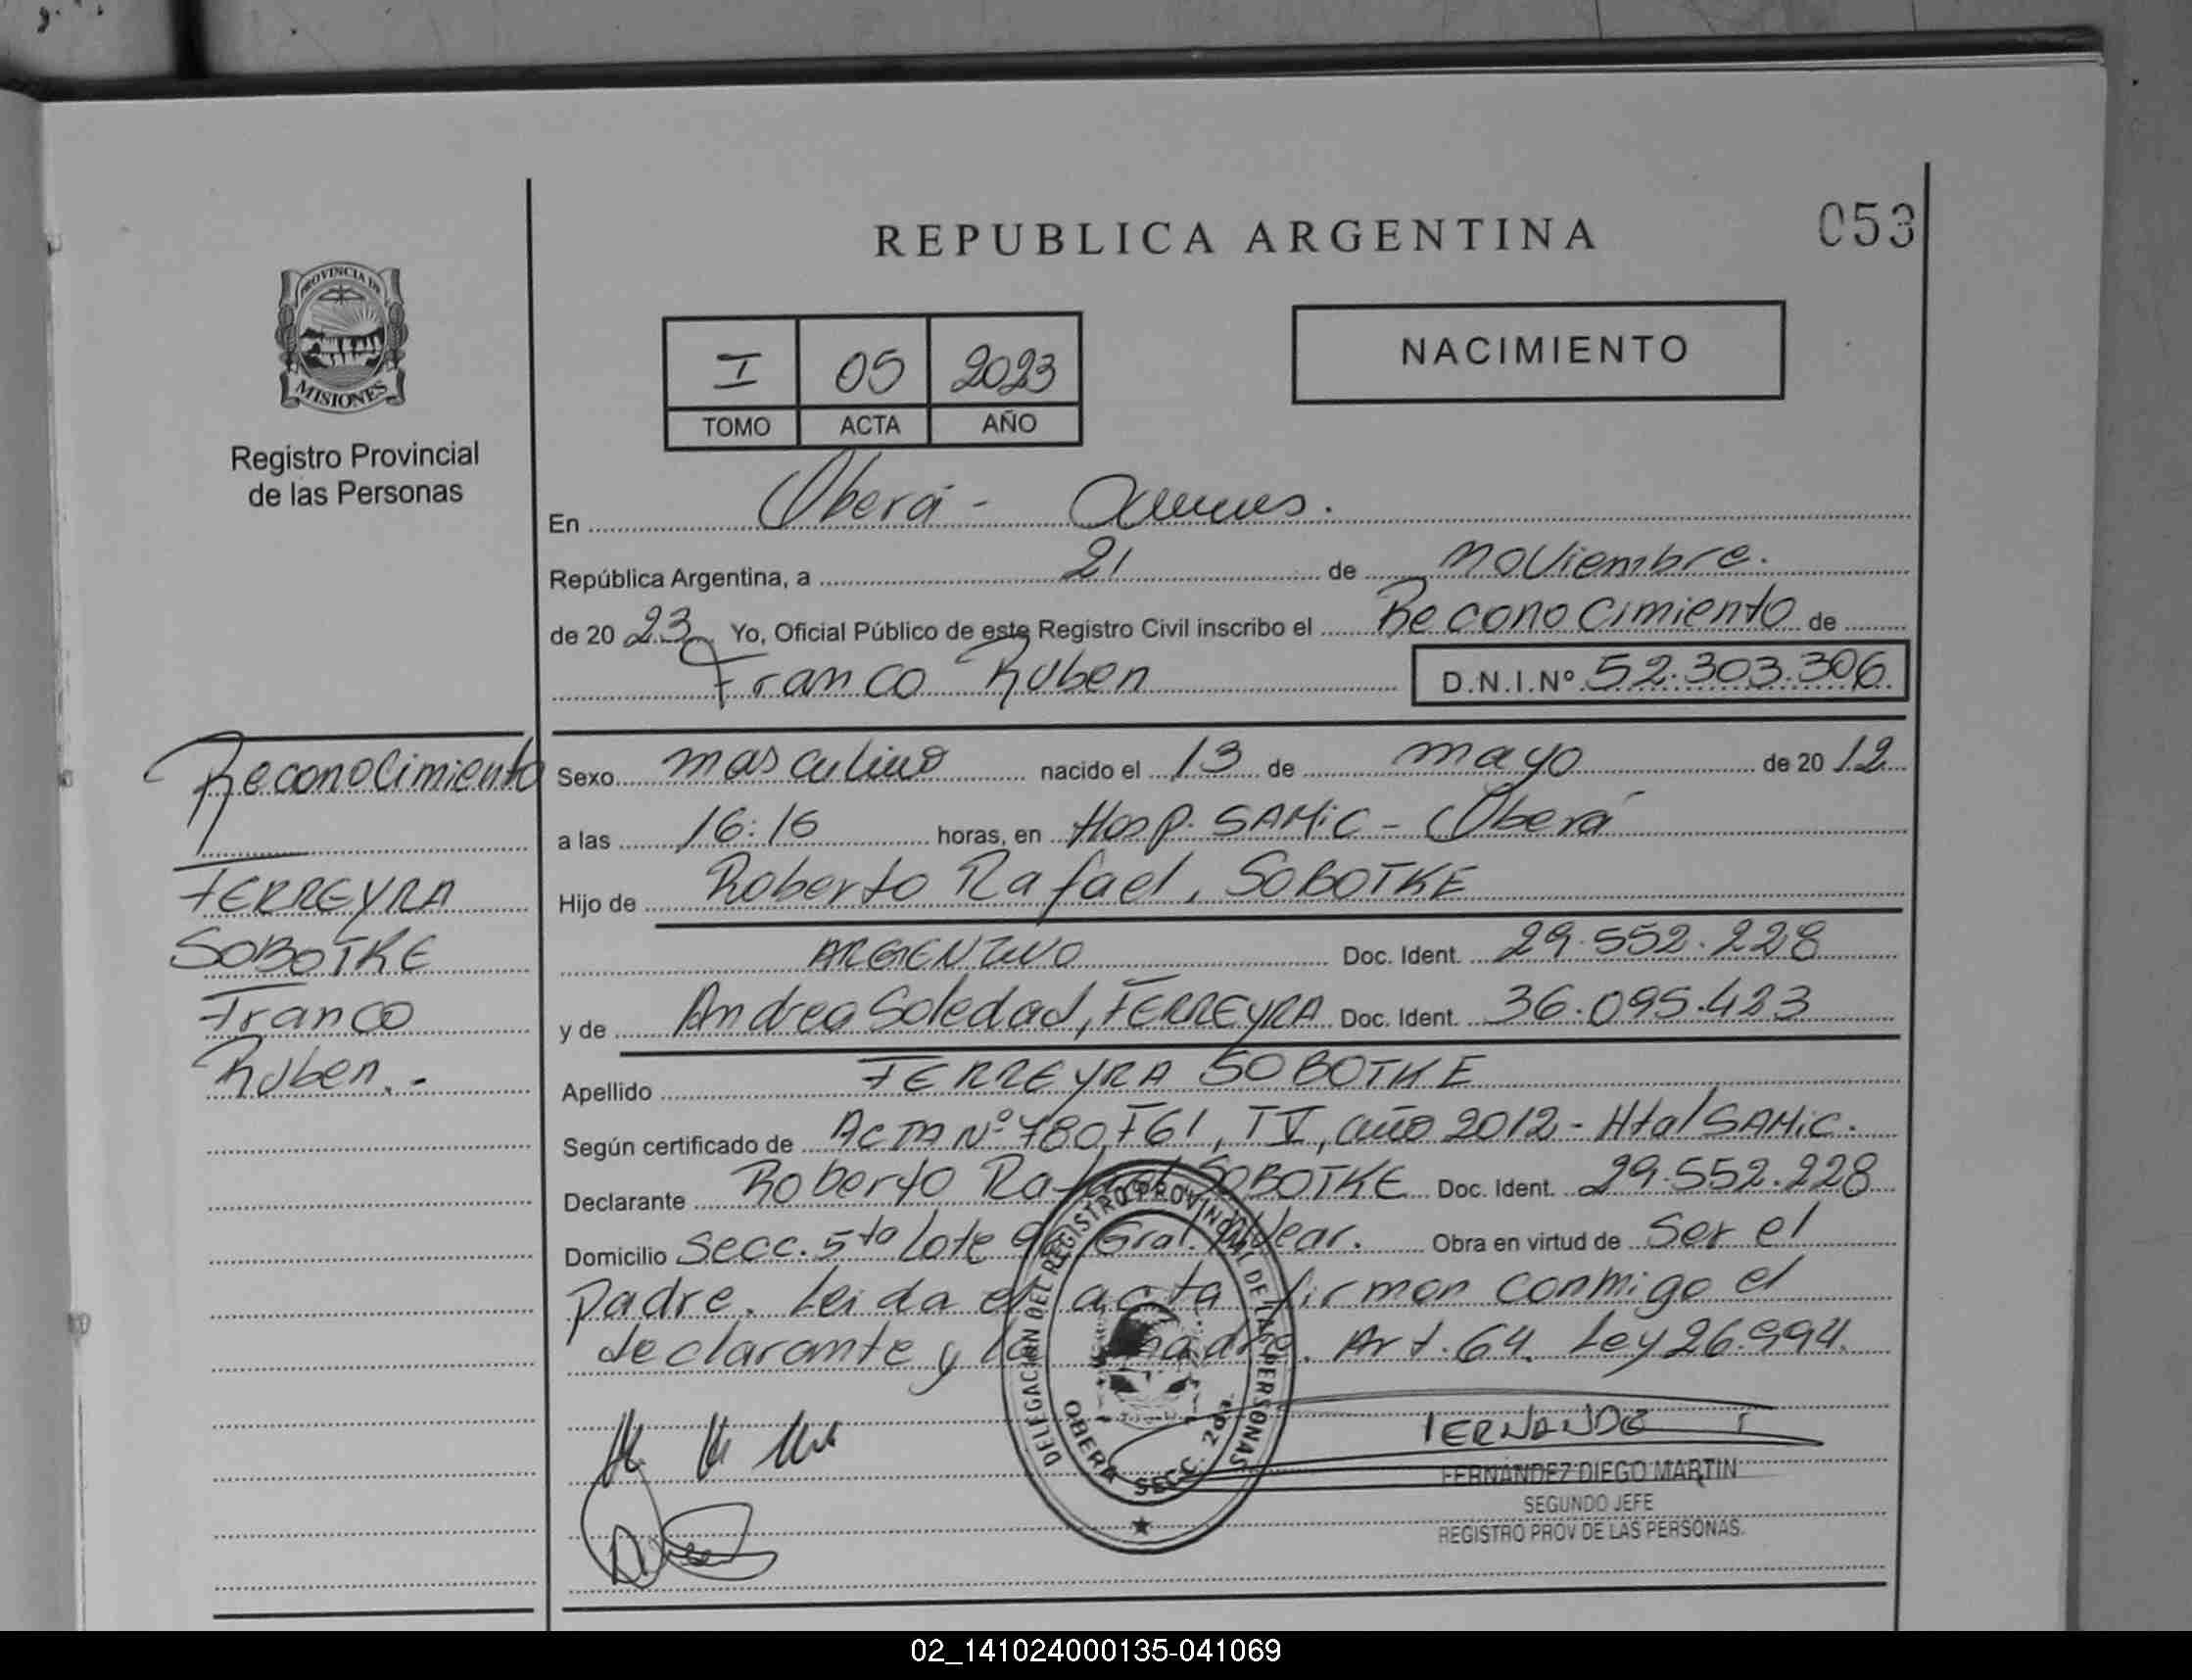 REPUBLICA ARGENTINA
053
PROVINCIA DE
MISIONES
Registro Provincial
de las Personas
I 05 2023
TOMO ACTA AÑO
NACIMIENTO
En Oberá -
República Argentina, a 21 de noviembre.
de 20 23 Yo, Oficial Público de este Registro Civil inscribo el Reconocimiento de
Franco Ruben D.N.I.Nº 52.303.306
Reconocimiento
FERREYRA
SOBOTKE
Franco
Ruben.-
Sexo masculino nacido el 13 de mayo de 20 12
a las 16:16 horas, en Hosp. SAMiC - Oberá
Hijo de Roberto Rafael, SOBOTKE
ARGENTINO Doc. Ident. 29.552.228
y de Andrea Soledad, FERREYRA Doc. Ident. 36.095.423
Apellido FERREYRA SOBOTKE
Según certificado de ACTA Nº 780, F61, TV, año 2012 - Htal SAMiC.
Declarante Roberto Rafael SOBOTKE Doc. Ident. 29.552.228
Domicilio Secc. 5ta Lote Gral. Alvear. Obra en virtud de Ser el
padre. Leida el acta firman conmigo el
declarante y la madre. Art. 64. Ley 26.994.
DELEGACIÓN DEL REGISTRO PROVINCIAL DE LAS PERSONAS
OBERA SECC. 2da.
FERNANDEZ DIEGO MARTIN
SEGUNDO JEFE
REGISTRO PROV DE LAS PERSONAS.
02_141024000135-041069